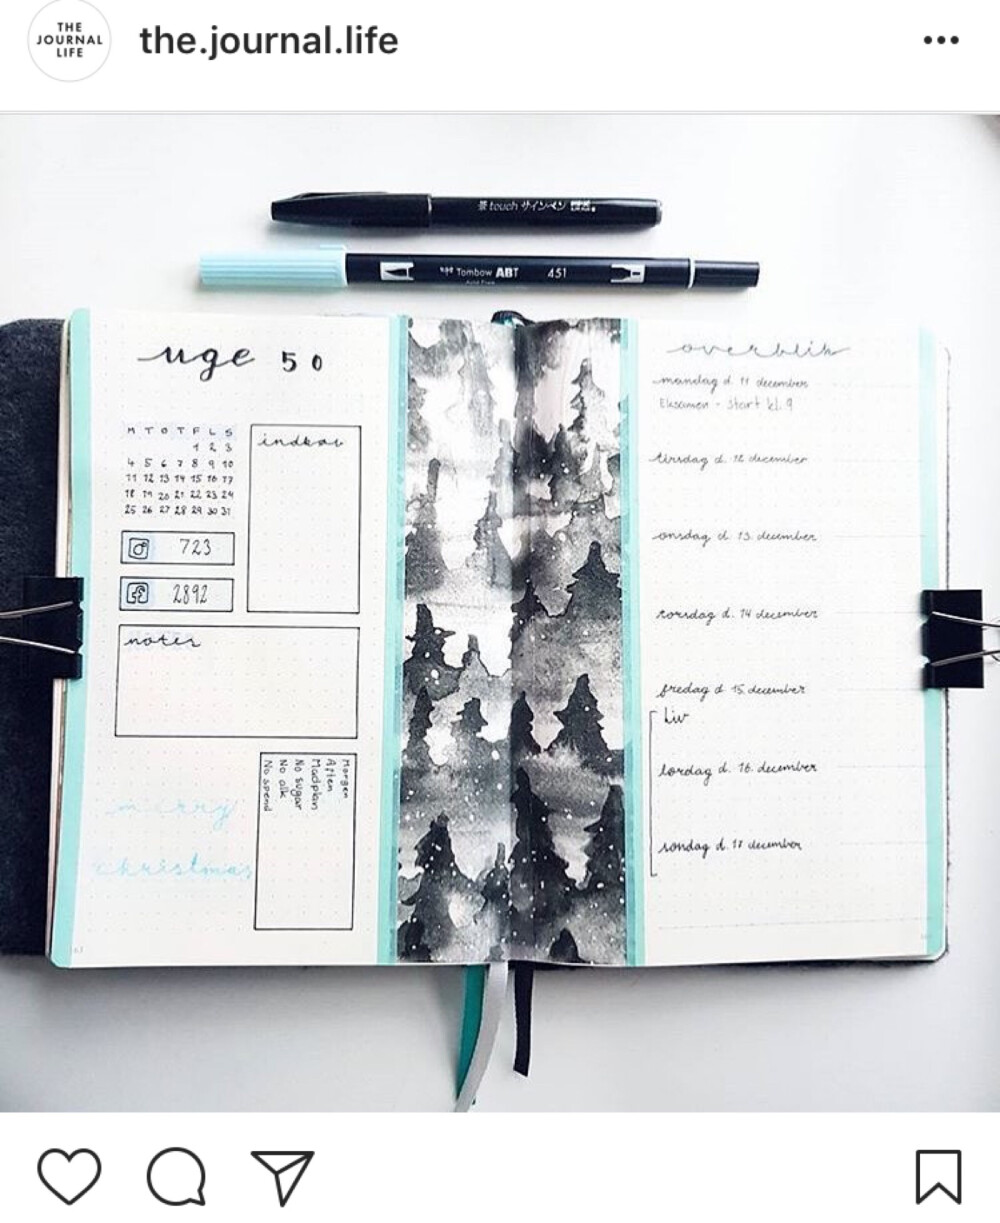 THE
JOURNAL
LIFE
the.journal.life
touch サインペン
Tombow ABT 451
uge 50
M T O T F L S
1 2 3
4 5 6 7 8 9 10
11 12 13 14 15 16 17
18 19 20 21 22 23 24
25 26 27 28 29 30 31
indkøb
723
2892
noter
Morgen
Aften
Madplan
No sugar
No alk
No spend
merry
christmas
overblik
mandag d. 11 december
Eksamen - start kl. 9
tirsdag d. 12 december
onsdag d. 13. december
torsdag d. 14 december
fredag d 15. december
Liv
lørdag d. 16. december
søndag d. 17 december